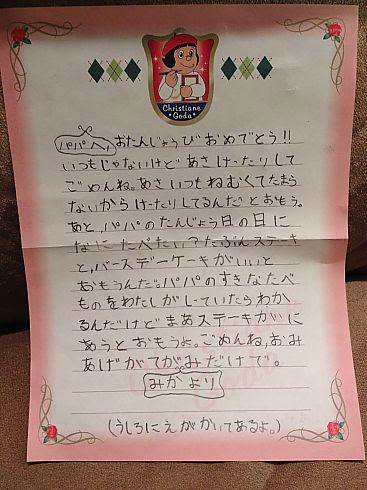 Christiane
Goda
パパへ, おたんじょうびおめでとう!!
いつもじゃないけどあさけったりして
ごめんね。あさいつもねむくてたまら
ないからけったりしてるんだとおもう。
あと,パパのたんじょう日の日に
なにたべたい?たぶんステーキ
と,バースデーケーキがいいと
おもうんだ。パパのすきなたべ
ものをわたしがしっていたらわか
るんだけどまあステーキがに
あうとおもうよ。ごめんね,おみ
あげがてがみだけで。
みかより
(うしろにえがかいてあるよ。)